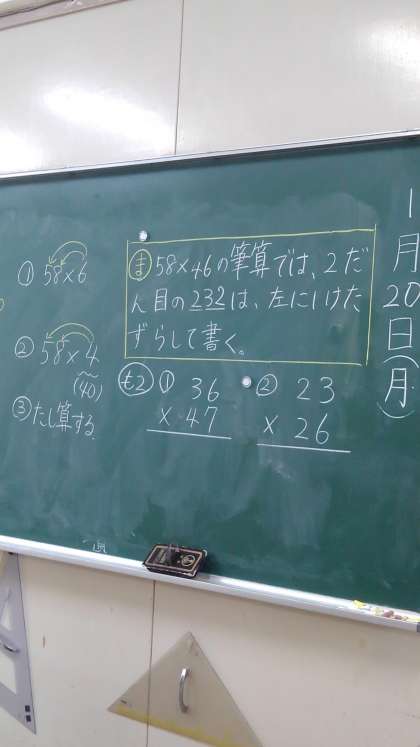 1月20日(月)
① 58×6
② 58×4
(40)
③ たし算する
ま 58×46の筆算では、2だ
ん目の232は、左に1けた
ずらして書く。
も2 ① 36
× 47
② 23
× 26